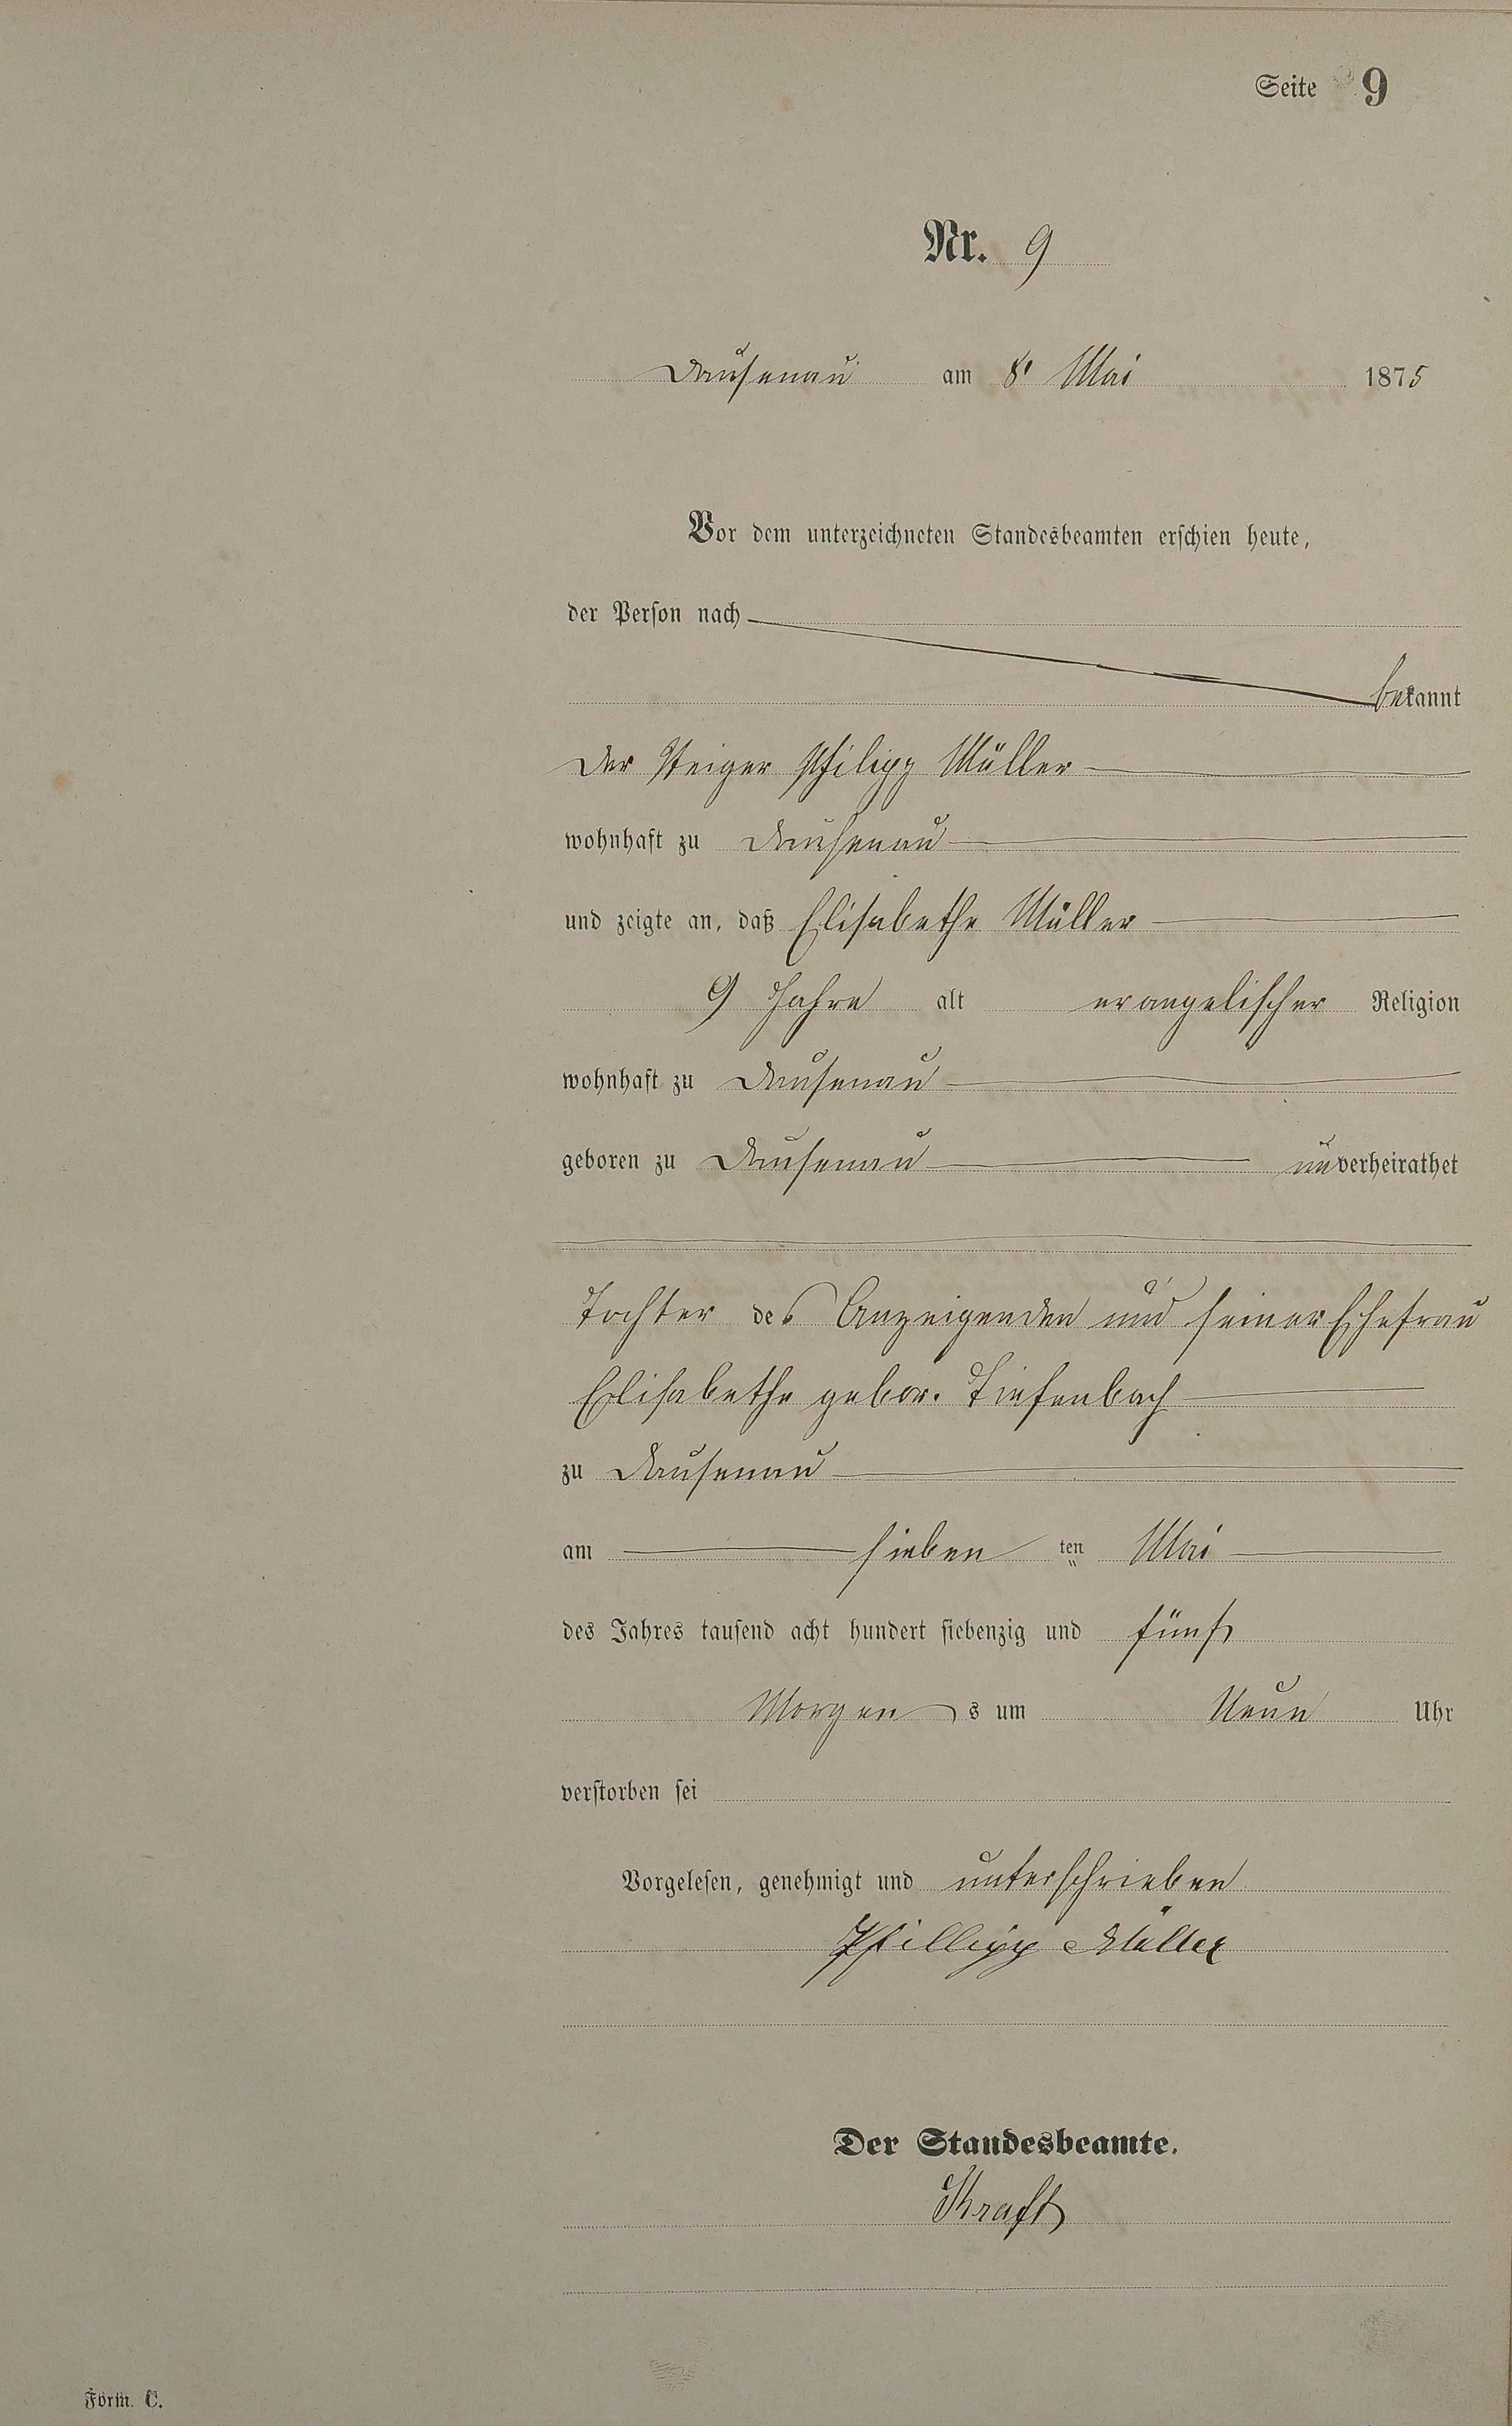 Seite 9
Nr. 9
Dausenau am 8' Mai 1875
Vor dem unterzeichneten Standesbeamten erschien heute,
der Person nach
bekannt
der Steiger Philipp Müller
wohnhaft zu Dausenau
und zeigte an, daß Elisabethe Müller
9 Jahre alt evangelischer Religion
wohnhaft zu Dausenau
geboren zu Dausenau unverheirathet
Tochter des Anzeigenden und seiner Ehefrau
Elisabethe gebor. Tiefenbach
zu Dausenau
am sieben ten Mai
des Jahres tausend acht hundert siebenzig und fünf
Morgen s um Neun Uhr
verstorben sei
Vorgelesen, genehmigt und unterschrieben
Phillipp Müller
Der Standesbeamte.
Kraft
Form. C.